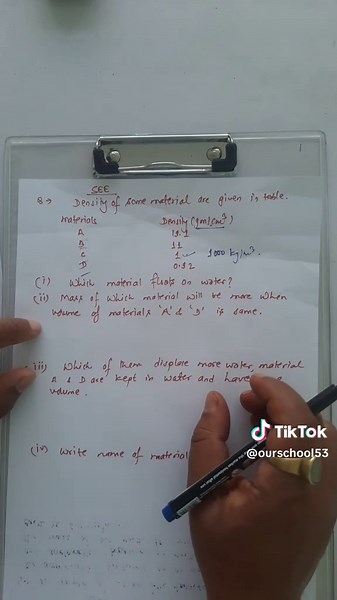 SEE
Q→ Density of some material are given in table.
Materials Density (gm/cm³)
A 19.1
B 11
C 1 1000 kg/m³.
D 0.92
(i) Which material floats on water?
(ii) Mass of which material will be more when
volume of materials 'A' & 'D' is same.
iii) Which of them displace more water, material
A & D are kept in water and have
volume.
(iv) Write name of material
TikTok
@ourschool53